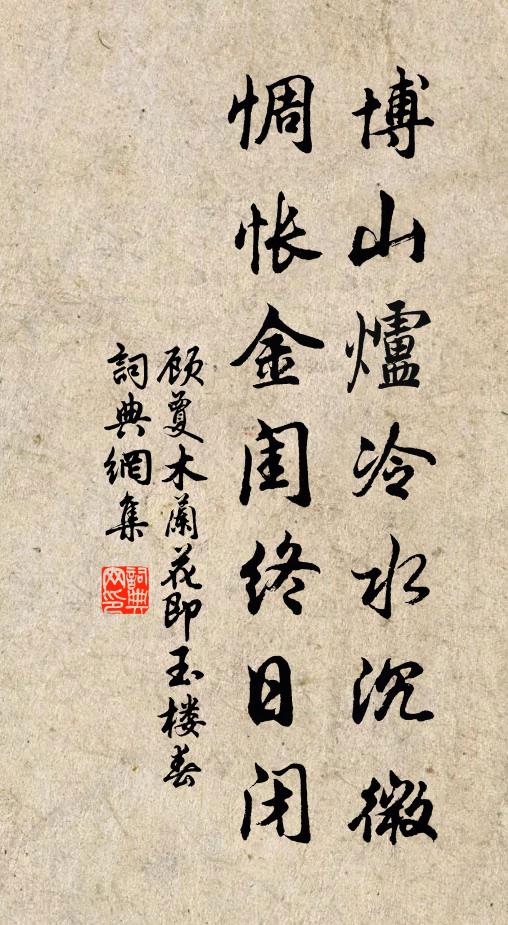 博山爐冷水沉微
惆怅金闺终日闭
顾夐木蘭花即玉楼春
詞典網集
詞典網印